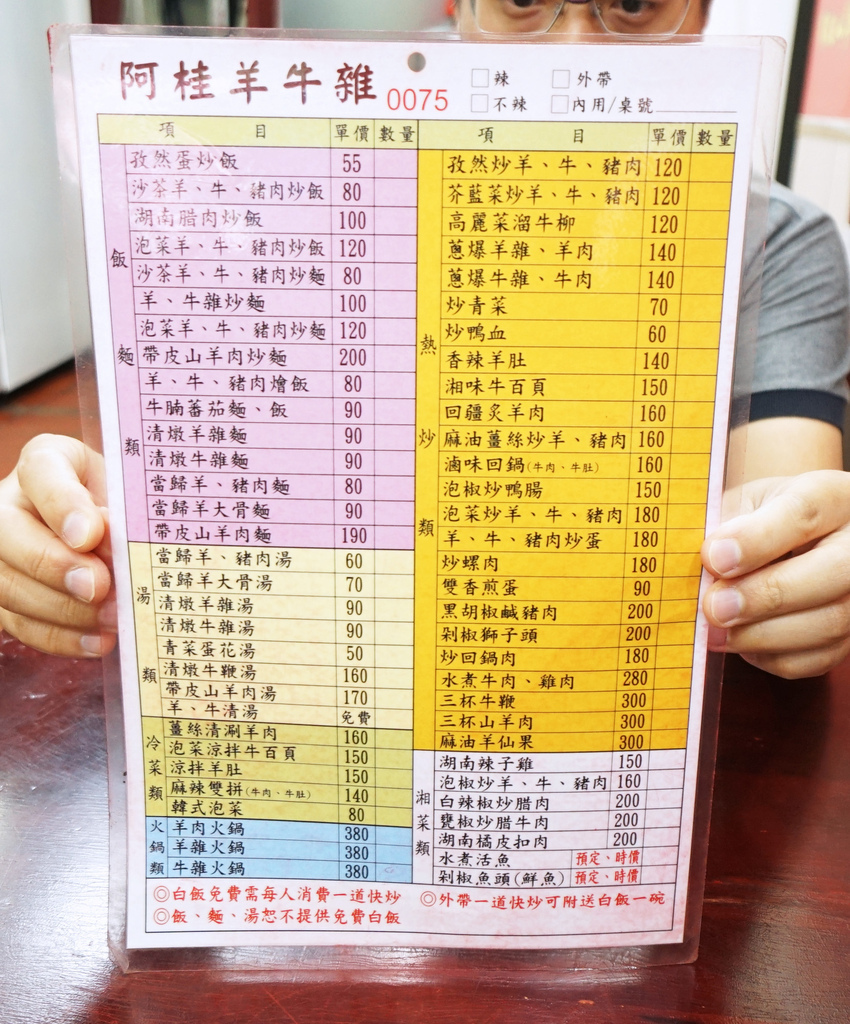 阿桂羊牛雜 0075 □辣 □外帶
□不辣 □內用/桌號
項目 單價 數量
飯麵類
孜然蛋炒飯 55
沙茶羊、牛、豬肉炒飯 80
湖南腊肉炒飯 100
泡菜羊、牛、豬肉炒飯 120
沙茶羊、牛、豬肉炒麵 80
羊、牛雜炒麵 100
泡菜羊、牛、豬肉炒麵 120
帶皮山羊肉炒麵 200
羊、牛、豬肉燴飯 80
牛腩蕃茄麵、飯 90
清燉羊雜麵 90
清燉牛雜麵 90
當歸羊、豬肉麵 80
當歸羊大骨麵 90
帶皮山羊肉麵 190
湯類
當歸羊、豬肉湯 60
當歸羊大骨湯 70
清燉羊雜湯 90
清燉牛雜湯 90
青菜蛋花湯 50
清燉牛鞭湯 160
帶皮山羊肉湯 170
羊、牛清湯 免費
冷菜類
薑絲清涮羊肉 160
泡菜涼拌牛百頁 150
涼拌羊肚 150
麻辣雙拼(牛肉、牛肚) 140
韓式泡菜 80
火鍋類
羊肉火鍋 380
羊雜火鍋 380
牛雜火鍋 380
項目 單價 數量
熱炒類
孜然炒羊、牛、豬肉 120
芥藍菜炒羊、牛、豬肉 120
高麗菜溜牛柳 120
蔥爆羊雜、羊肉 140
蔥爆牛雜、牛肉 140
炒青菜 70
炒鴨血 60
香辣羊肚 140
湘味牛百頁 150
回疆炙羊肉 160
麻油薑絲炒羊、豬肉 160
滷味回鍋(牛肉、牛肚) 160
泡椒炒鴨腸 150
泡菜炒羊、牛、豬肉 180
羊、牛、豬肉炒蛋 180
炒螺肉 180
雙香煎蛋 90
黑胡椒鹹豬肉 200
剁椒獅子頭 200
炒回鍋肉 180
水煮牛肉、雞肉 280
三杯牛鞭 300
三杯山羊肉 300
麻油羊仙果 300
湘菜類
湖南辣子雞 150
泡椒炒羊、牛、豬肉 160
白辣椒炒腊肉 200
甕椒炒腊牛肉 200
湖南橘皮扣肉 200
水煮活魚 預定、時價
剁椒魚頭(鮮魚) 預定、時價
◎白飯免費需每人消費一道快炒 ◎外帶一道快炒可附送白飯一碗
◎飯、麵、湯恕不提供免費白飯